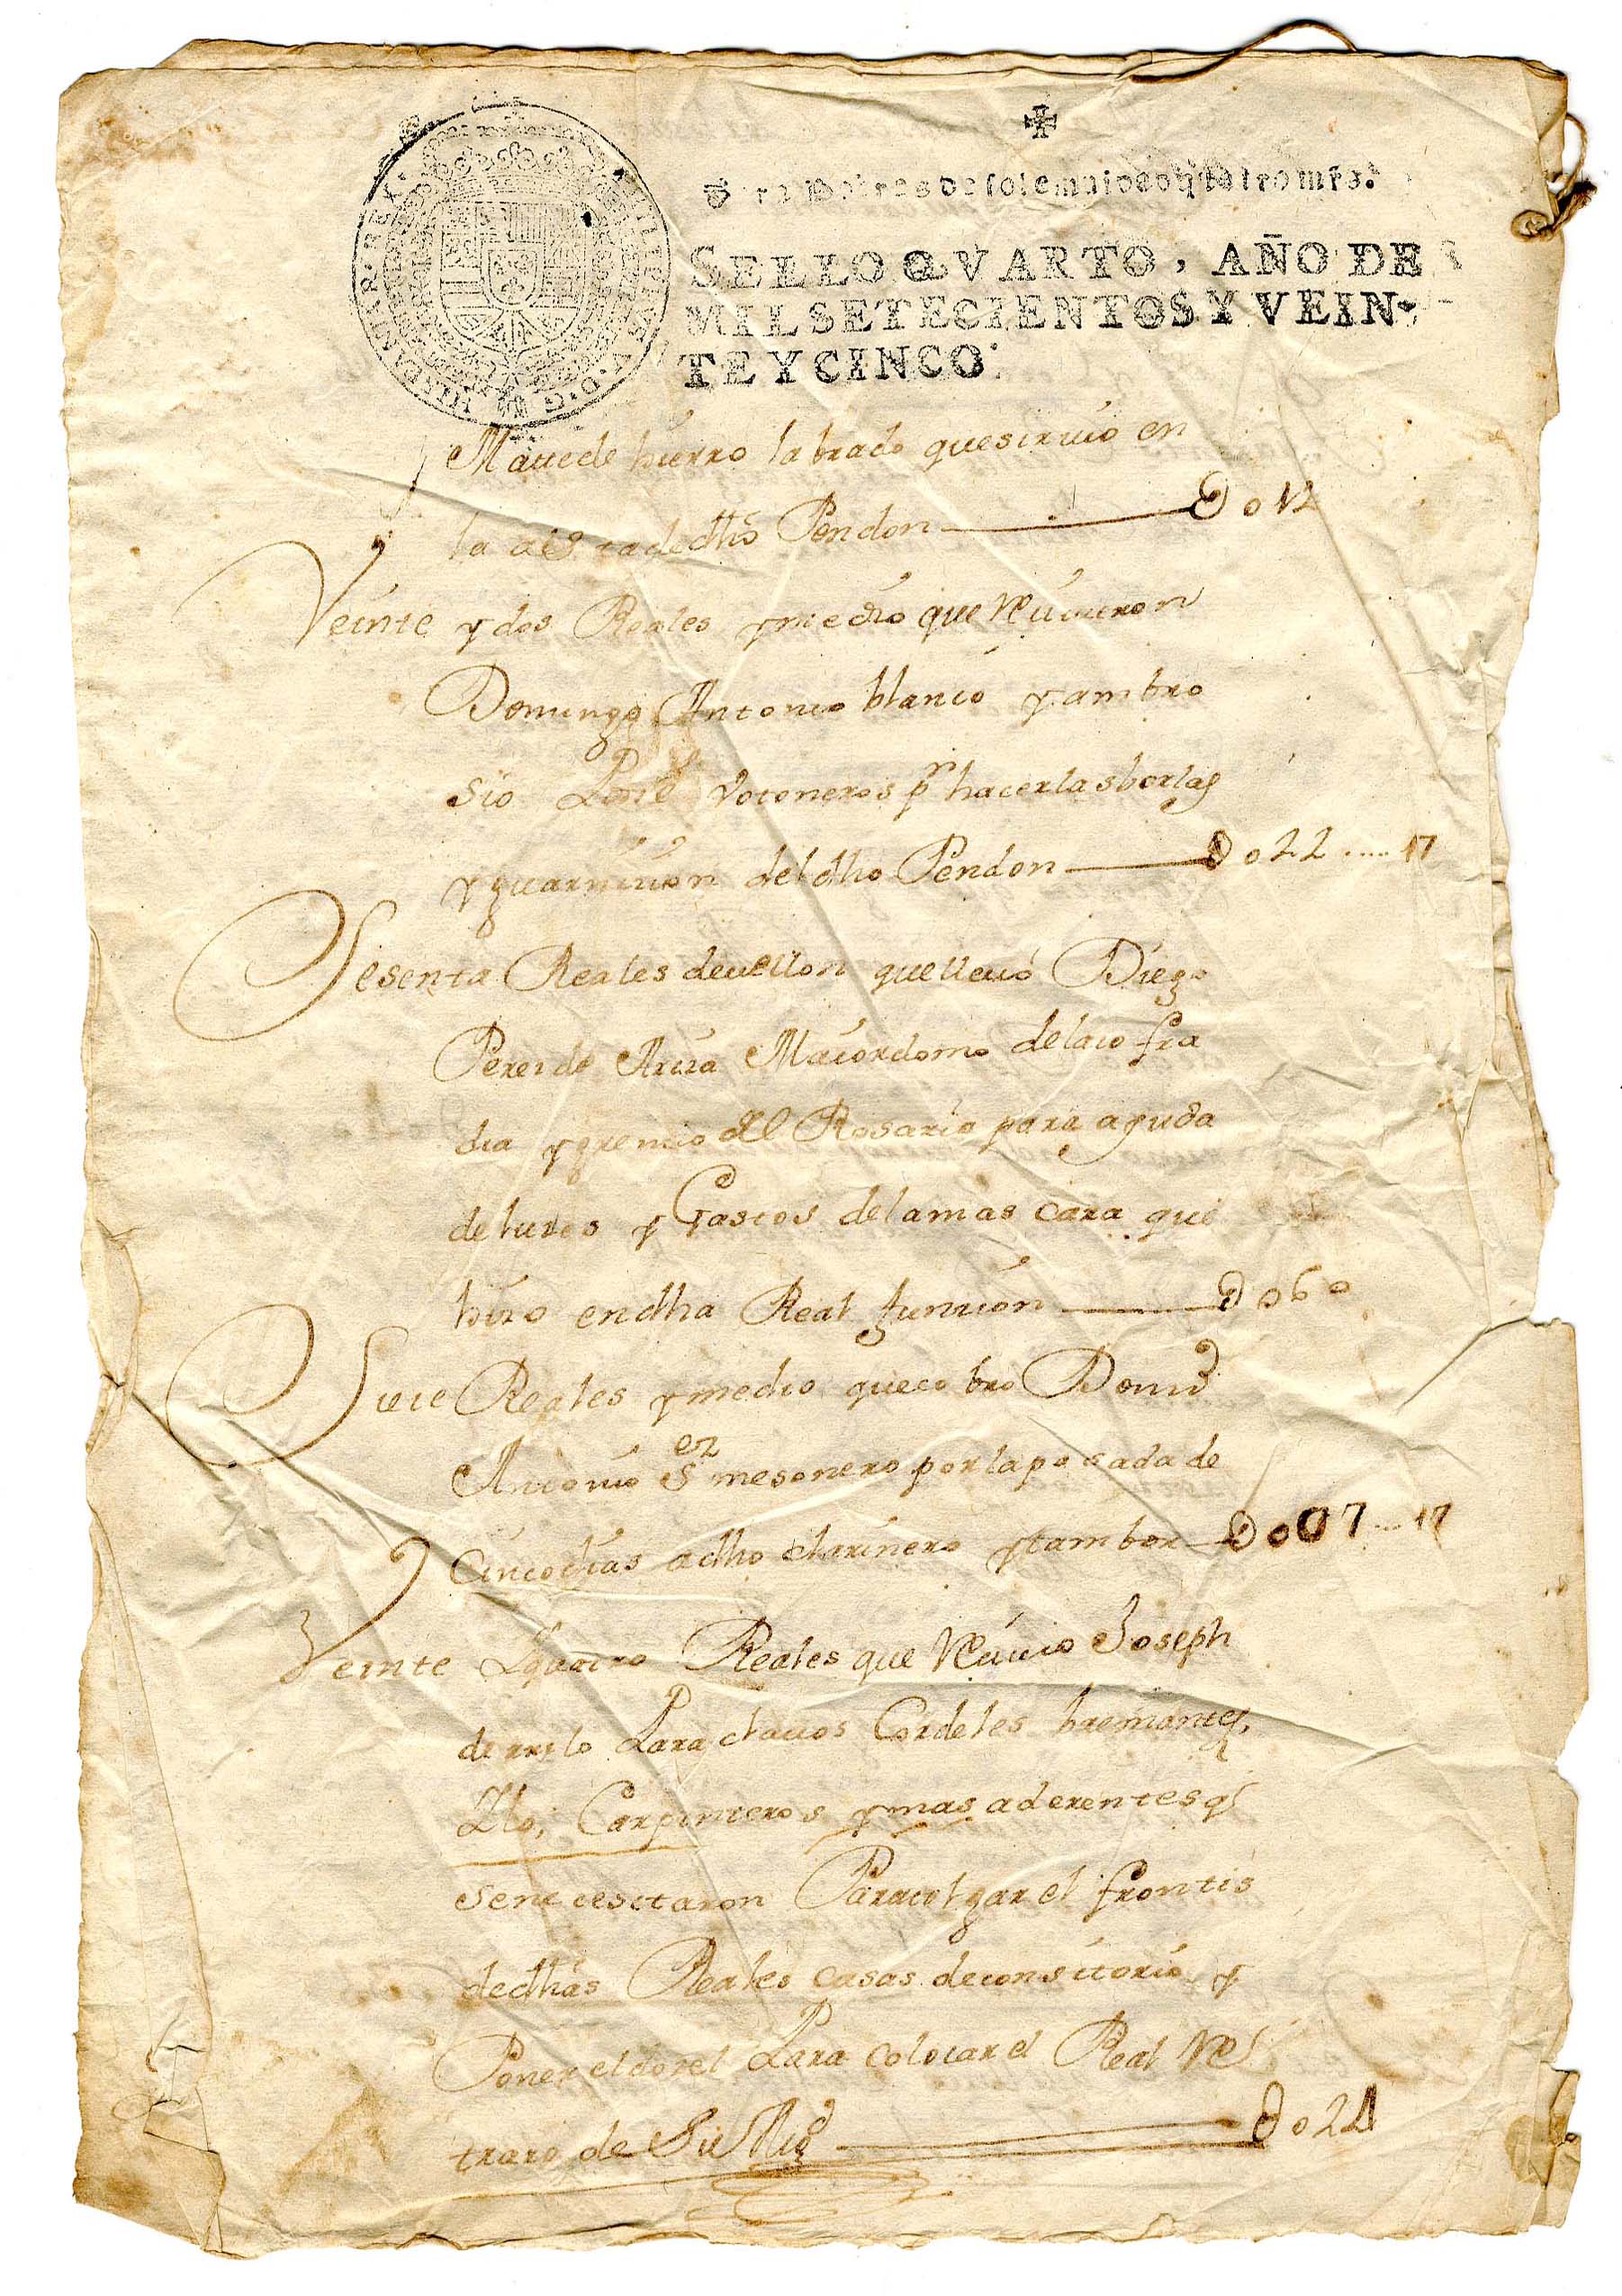 ✠
Para pobres de solemnidad quatro mrs.
SELLO QVARTO, AÑO DE
MIL SETECIENTOS Y VEIN-
TE Y CINCO.
HISPANIAR. REX
D. G.
Maue de hierro labrado que siruio en
la asta de dho Pendon 012
Veinte y dos Reales y medio que Reciuieron
Domingo Antonio blanco y ambro
sio votoneros pr hacer las borlas
y guarnicion del dho Pendon 022 .... 17
Sesenta Reales de vellon que lleuó Diego
Perez de Maiordomo de la cofra
dia y gremio del Rosario para ayuda
de luces y Gastos de la mas cara que
hizo en dha Real funzion 060
Siete Reales y medio que cobro Domo
Antonio Sez mesonero por la posada de
Cinco dias a dho clarinero y tambor 007 .. 17
Veinte y quatro Reales que Reciuio Joseph
de Para clauos Cordeles bremantes,
Ylo, Carpinteros y mas aderentes q
se necesitaron Para colgar el frontis
de dhas Reales casas de consistorio y
Poner el dosel Para colocar el Real Re
trato de Su Magd 024